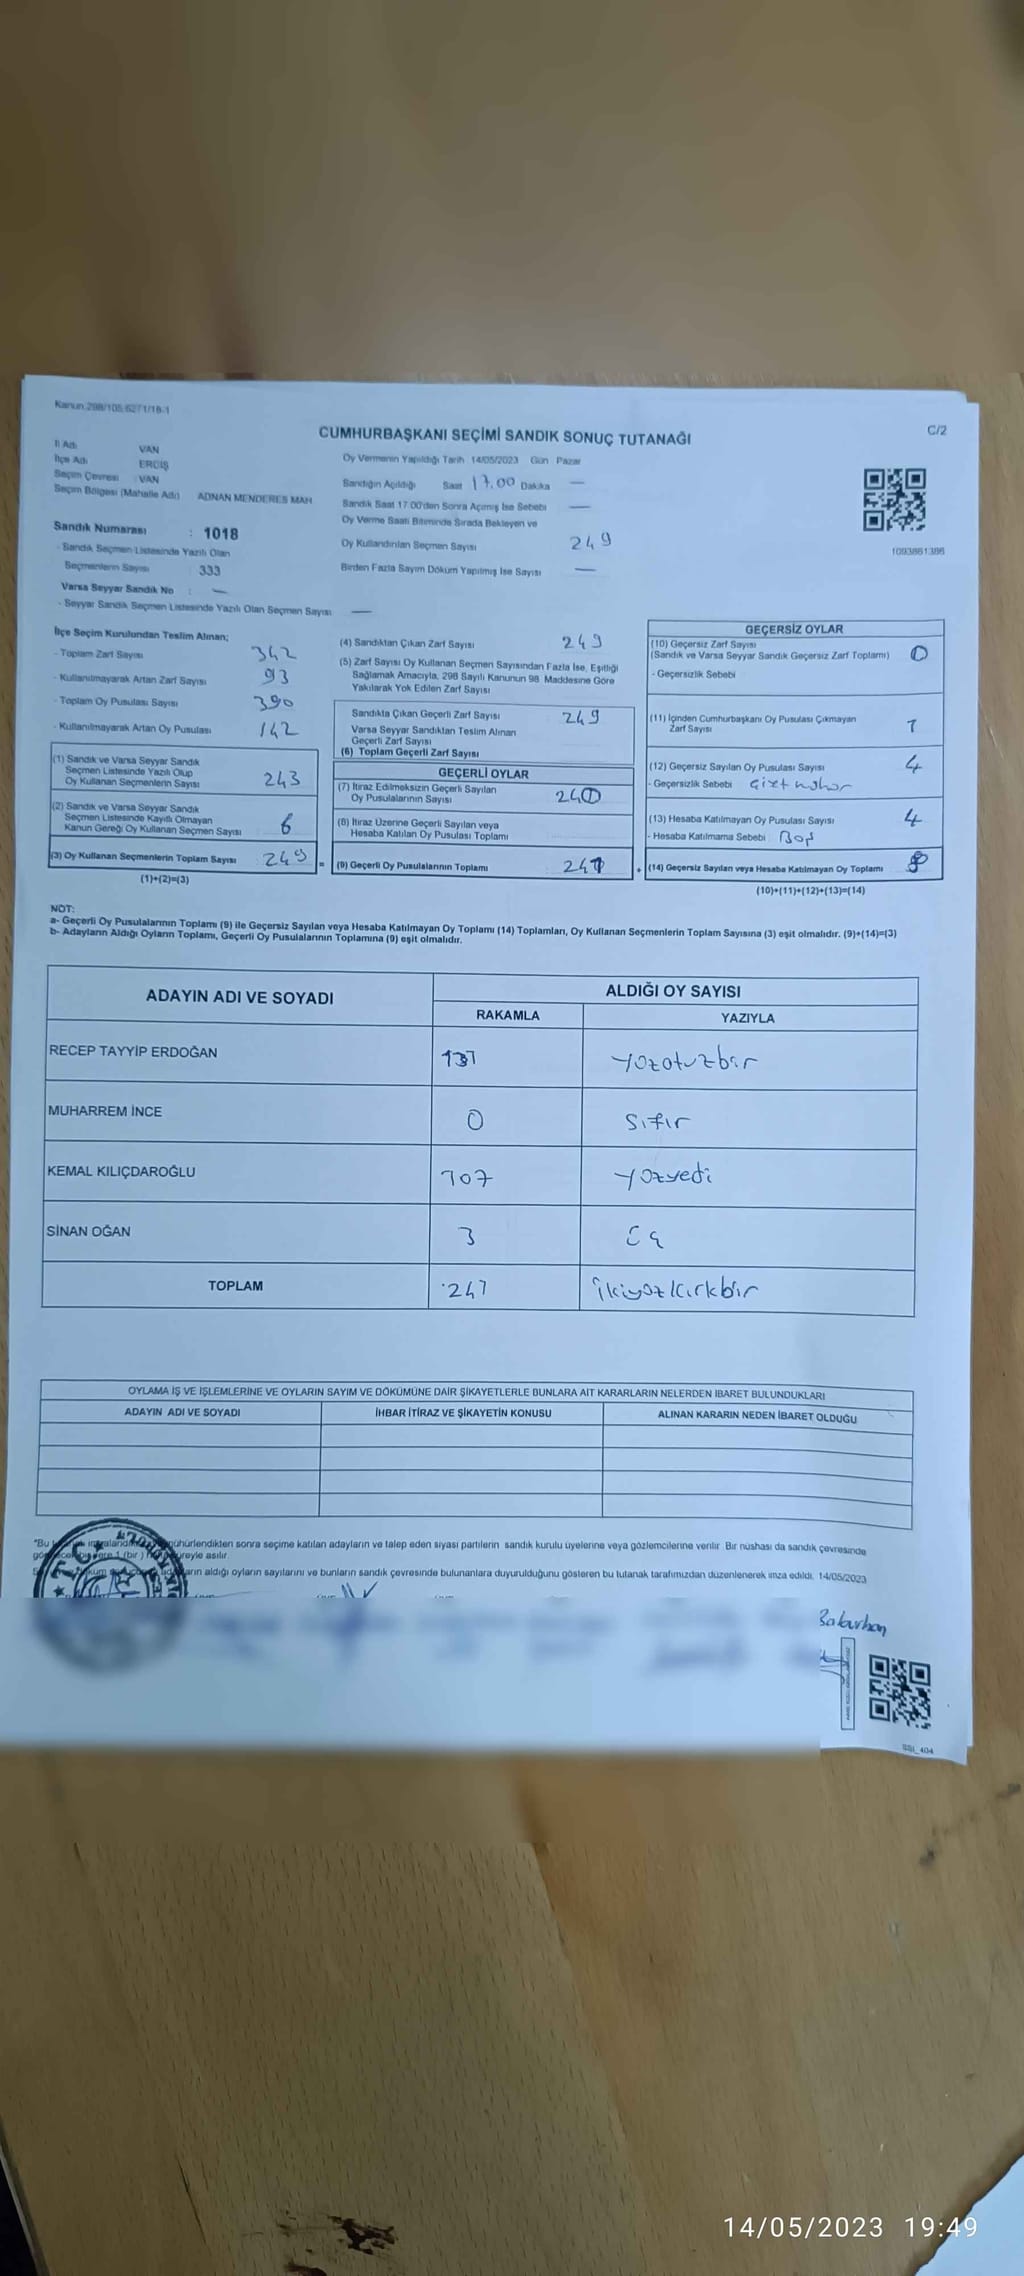 Kanun:298/105,6271/18-1
C/2
CUMHURBAŞKANI SEÇİMİ SANDIK SONUÇ TUTANAĞI
İl Adı VAN
İlçe Adı ERCİŞ
Seçim Çevresi : VAN
Seçim Bölgesi (Mahalle Adı) ADNAN MENDERES MAH
Sandık Numarası : 1018
- Sandık Seçmen Listesinde Yazılı Olan
Seçmenlerin Sayısı : 333
Varsa Seyyar Sandık No : —
- Seyyar Sandık Seçmen Listesinde Yazılı Olan Seçmen Sayısı —
Oy Vermenin Yapıldığı Tarih 14/05/2023 Gün Pazar
Sandığın Açıldığı Saat 17.00 Dakika —
Sandık Saat 17.00'den Sonra Açımış İse Sebebi —
Oy Verme Saati Bitiminde Sırada Bekleyen ve
Oy Kullandırılan Seçmen Sayısı 249
Birden Fazla Sayım Döküm Yapılmış İse Sayısı —
1093861386
İlçe Seçim Kurulundan Teslim Alınan;
- Toplam Zarf Sayısı 342
- Kullanılmayarak Artan Zarf Sayısı 93
- Toplam Oy Pusulası Sayısı 390
- Kullanılmayarak Artan Oy Pusulası 142
(1) Sandık ve Varsa Seyyar Sandık
Seçmen Listesinde Yazılı Olup
Oy Kullanan Seçmenlerin Sayısı 243
(2) Sandık ve Varsa Seyyar Sandık
Seçmen Listesinde Kayıtlı Olmayan
Kanun Gereği Oy Kullanan Seçmen Sayısı 6
(3) Oy Kullanan Seçmenlerin Toplam Sayısı : 249 =
(1)+(2)=(3)
(4) Sandıktan Çıkan Zarf Sayısı 249
(5) Zarf Sayısı Oy Kullanan Seçmen Sayısından Fazla İse, Eşitliği
Sağlamak Amacıyla, 298 Sayılı Kanunun 98. Maddesine Göre
Yakılarak Yok Edilen Zarf Sayısı
Sandıkta Çıkan Geçerli Zarf Sayısı 249
Varsa Seyyar Sandıktan Teslim Alınan
Geçerli Zarf Sayısı
(6) Toplam Geçerli Zarf Sayısı
GEÇERLİ OYLAR
(7) İtiraz Edilmeksizin Geçerli Sayılan
Oy Pusulalarının Sayısı
(8) İtiraz Üzerine Geçerli Sayılan veya
Hesaba Katılan Oy Pusulası Toplamı
(9) Geçerli Oy Pusulalarının Toplamı : 241 +
GEÇERSİZ OYLAR
(10) Geçersiz Zarf Sayısı
(Sandık ve Varsa Seyyar Sandık Geçersiz Zarf Toplamı) 0
- Geçersizlik Sebebi
(11) İçinden Cumhurbaşkanı Oy Pusulası Çıkmayan
Zarf Sayısı
(12) Geçersiz Sayılan Oy Pusulası Sayısı 4
- Geçersizlik Sebebi Çift mühür
(13) Hesaba Katılmayan Oy Pusulası Sayısı 4
- Hesaba Katılmama Sebebi Boş
(14) Geçersiz Sayılan veya Hesaba Katılmayan Oy Toplamı 8
(10)+(11)+(12)+(13)=(14)
NOT:
a- Geçerli Oy Pusulalarının Toplamı (9) ile Geçersiz Sayılan veya Hesaba Katılmayan Oy Toplamı (14) Toplamları, Oy Kullanan Seçmenlerin Toplam Sayısına (3) eşit olmalıdır. (9)+(14)=(3)
b- Adayların Aldığı Oyların Toplamı, Geçerli Oy Pusulalarının Toplamına (9) eşit olmalıdır.
ADAYIN ADI VE SOYADI ALDIĞI OY SAYISI
RAKAMLA YAZIYLA
RECEP TAYYİP ERDOĞAN 131 yüzotuzbir
MUHARREM İNCE 0 Sıfır
KEMAL KILIÇDAROĞLU 107 yüzyedi
SİNAN OĞAN 3 üç
TOPLAM 241 ikiyüzkırkbir
OYLAMA İŞ VE İŞLEMLERİNE VE OYLARIN SAYIM VE DÖKÜMÜNE DAİR ŞİKAYETLERLE BUNLARA AİT KARARLARIN NELERDEN İBARET BULUNDUKLARI
ADAYIN ADI VE SOYADI İHBAR İTİRAZ VE ŞİKAYETİN KONUSU ALINAN KARARIN NEDEN İBARET OLDUĞU
"Bu mühürlendikten sonra seçime katılan adayların ve talep eden siyasi partilerin sandık kurulu üyelerine veya gözlemcilerine verilir. Bir nüshası da sandık çevresinde
süreyle asılır
aldığı oyların sayılarını ve bunların sandık çevresinde bulunanlara duyurulduğunu gösteren bu tutanak tarafımızdan düzenlenerek imza edildi. 14/05/2023
SSI_404
14/05/2023 19:49